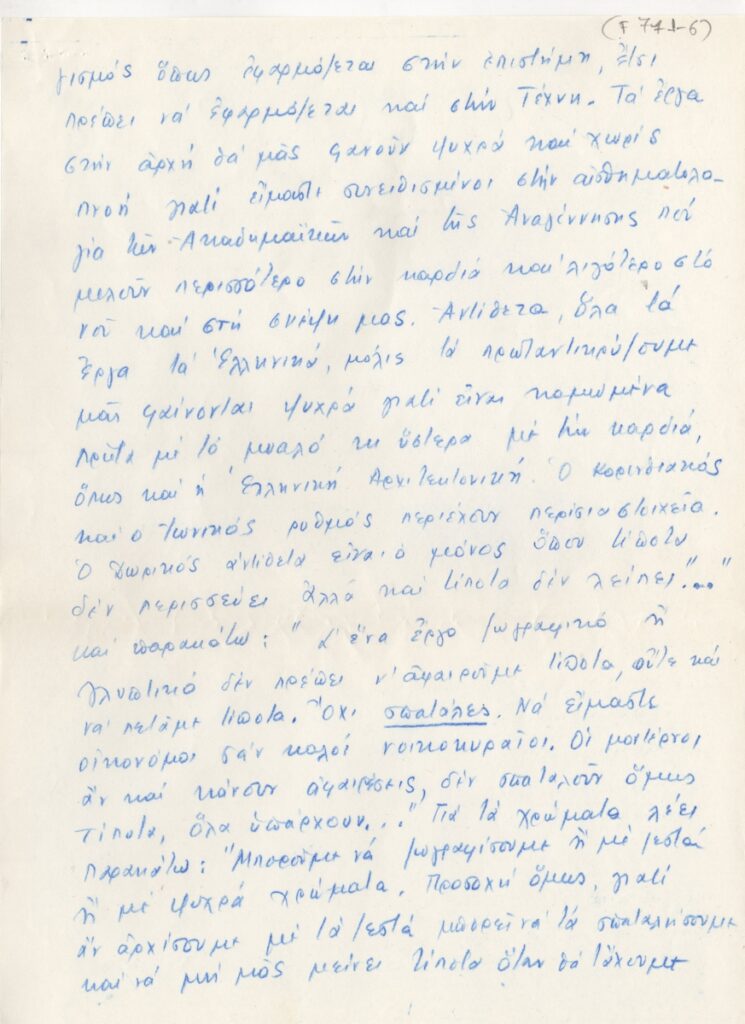 (F 741-6)
γισμός ὅπως ἐφαρμόζεται στήν ἐπιστήμη, ἔτσι
πρέπει νά ἐφαρμόζεται καί στήν Τέχνη. Τά ἔργα
στήν ἀρχή θά μᾶς φανοῦν ψυχρά καί χωρίς
πνοή γιατί εἴμαστε συνειθισμένοι στήν αἰσθηματολο-
γία τῶν Ἀκαδημαϊκῶν καί τῆς Ἀναγέννησης πού
μιλοῦν περισσότερο στήν καρδιά καί λιγότερο στό
νοῦ καί στή σκέψη μας. Ἀντίθετα, ὅλα τά
ἔργα τά Ἑλληνικά, μόλις τά πρωταντικρύζουμε
μᾶς φαίνονται ψυχρά γιατί εἶναι καμωμένα
πρῶτα μέ τό μυαλό κι ὕστερα μέ τήν καρδιά,
ὅπως καί ἡ Ἑλληνική Ἀρχιτεκτονική. Ὁ Κορινθιακός
καί ὁ Ἰωνικός ρυθμός περιέχουν περίσια στοιχεῖα.
Ὁ Δωρικός ἀντίθετα εἶναι ὁ μόνος ὅπου τίποτα
δέν περισσεύει ἀλλά καί τίποτα δέν λείπει"..."
καί παρακάτω: "Σ' ἕνα ἔργο ζωγραφικό ἤ
γλυπτικό δέν πρέπει ν' ἀφαιροῦμε τίποτα, οὔτε καί
νά πετᾶμε τίποτα. Ὄχι σπατάλες. Νά εἴμαστε
οἰκονόμοι σάν καλοί νοικοκυραῖοι. Οἱ μοντέρνοι
ἄν καί κάνουν ἀφαιρέσεις, δέν σπαταλοῦν ὅμως
τίποτα, ὅλα ὑπάρχουν..." Γιά τά χρώματα λέει
παρακάτω: "Μποροῦμε νά ζωγραφίσουμε ἤ μέ ζεστά
ἤ μέ ψυχρά χρώματα. Προσοχή ὅμως, γιατί
ἄν ἀρχίσουμε μέ τά ζεστά μπορεῖ νά τά σπαταλήσουμε
καί νά μή μᾶς μείνει τίποτα ὅταν θά τἄχουμε